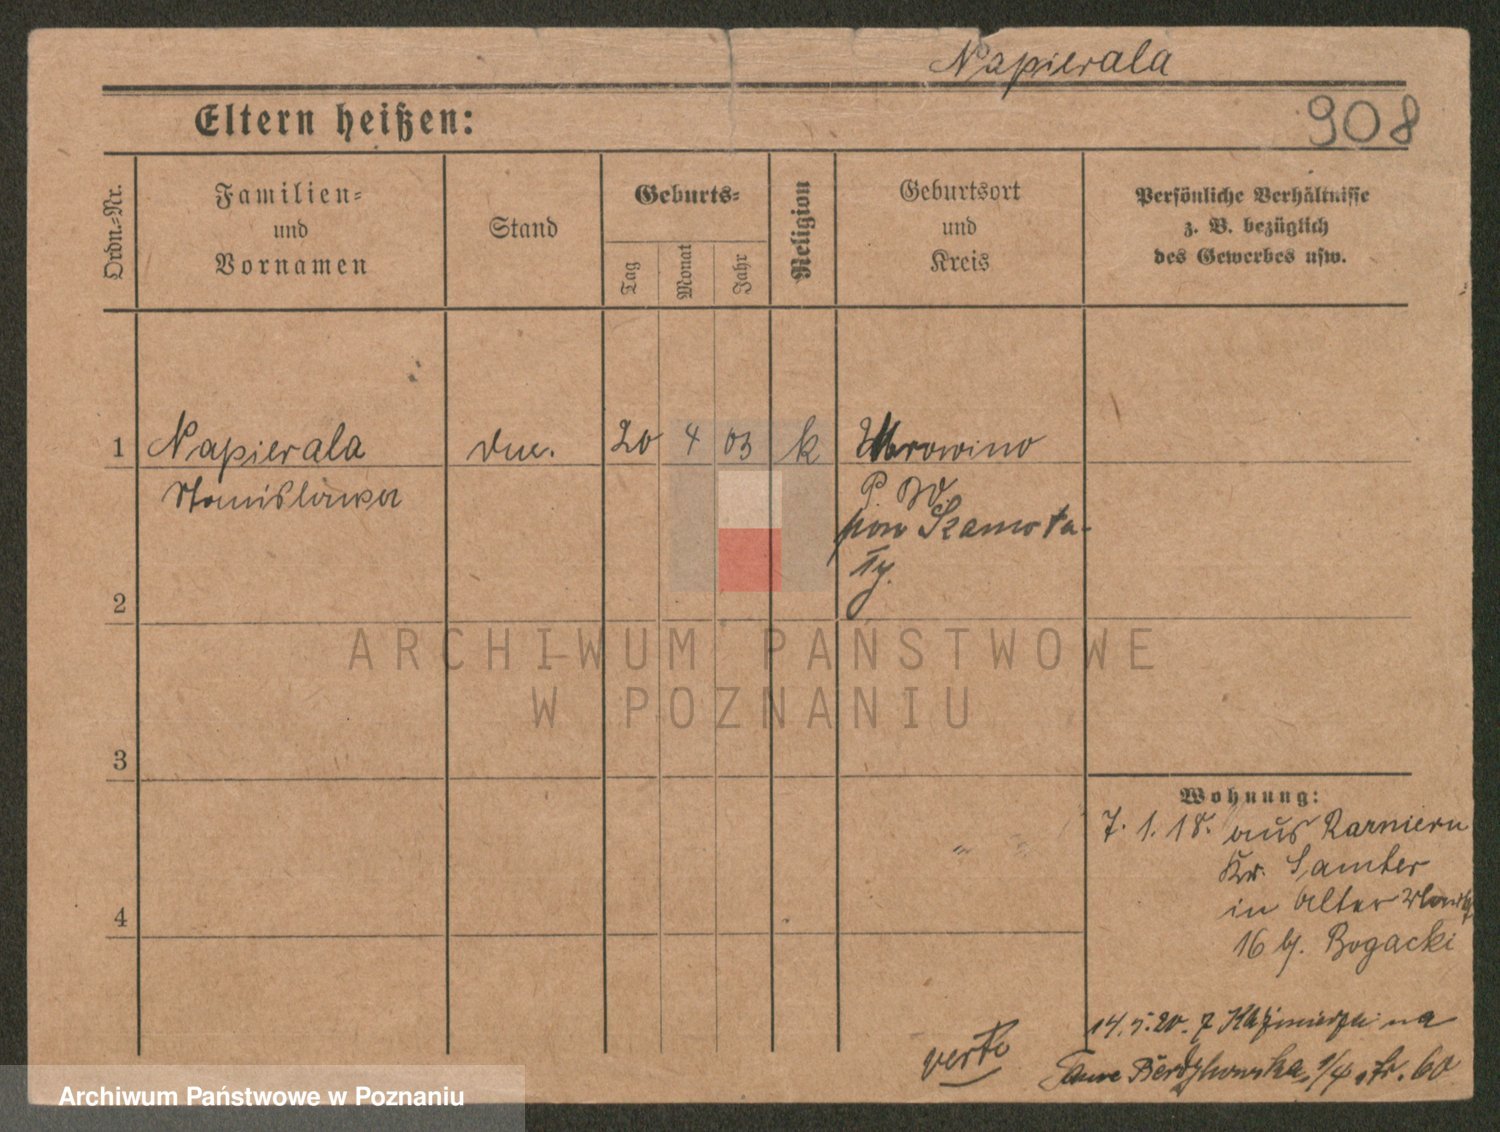 Napierala
908
Eltern heißen:
Ordn.-Nr.
Familien-
und
Vornamen
Stand
Geburts-
Tag
Monat
Jahr
Religion
Geburtsort
und
Kreis
Persönliche Verhältnisse
z. B. bezüglich
des Gewerbes usw.
1 Napierala 20 4 03 k
Stanislawa
pow Szamotu-
ły.
2
3
4
ARCHIWUM PAŃSTWOWE
W POZNANIU
Wohnung:
7. 1. 18. aus
Kr. Samter
in Alter
16 b/. Bogacki
14.5.20. z Kaźmierza na
60
verte
Archiwum Państwowe w Poznaniu